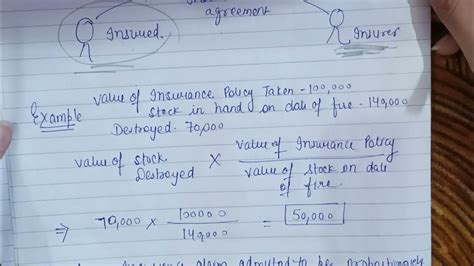 agreement
Insured. Insurer
Example Value of Insurance Policy Taken - 100,000
stock in hand on date of fire - 140,000
Destroyed - 70,000
value of stock Destroyed × value of Insurance Policy
value of stock on date of fire.
⇒ 70,000 × 100000 / 140000 = 50,000
claim admitted to be proportionately